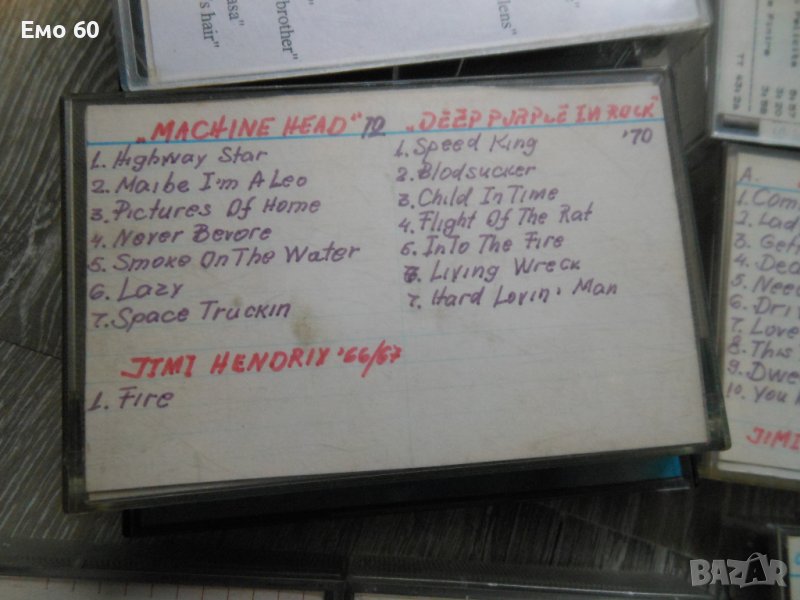 Емо 60
asa"
's hair"
brother"
lens"
TT 43:24
„MACHINE HEAD" 72
1. Highway Star
2. Maibe I'm A Leo
3. Pictures Of Home
4. Never Bevore
5. Smoke On The Water
6. Lazy
7. Space Truckin
JIMI HENDRIX '66/67
1. Fire
„DEEP PURPLE IN ROCK"
'70
1. Speed King
2. Blodsucker
3. Child In Time
4. Flight Of The Rat
5. InTo The Fire
6. Living Wreck
7. Hard Lovin' Man
A.
1. Com
2. Lad
3. Gett
4. Dea
5. Nee
6. Dri
7. Love
8. This
9. Dwe
10. You
JIMI
BAZAR